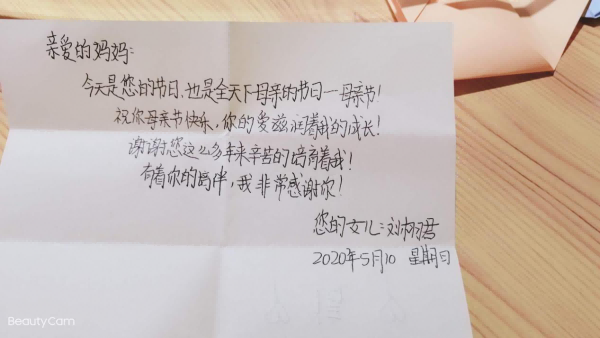 亲爱的妈妈:
今天是您的节日,也是全天下母亲的节日一母亲节!
祝你母亲节快乐,你的爱滋润着我的成长!
谢谢您这么多年来辛苦的培育着我!
有着你的陪伴,我非常感谢你!
您的女儿:刘栩君
2020年5月10 星期日
BeautyCam